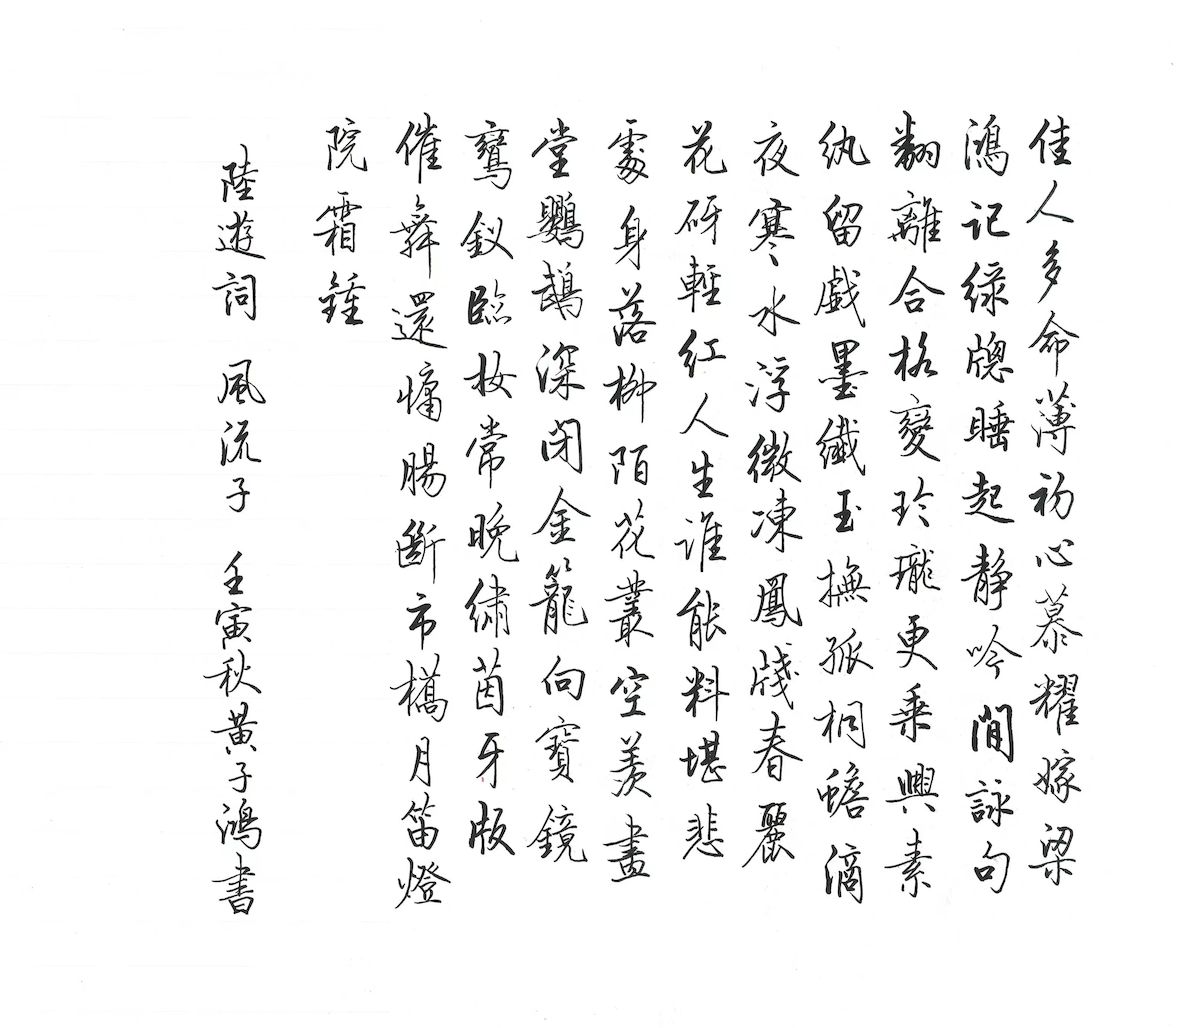 佳人多命薄初心慕耀嫁梁
鴻記綠牕睡起靜吟閒詠句
翻離合格變玲瓏更乘興素
紈留戲墨纖玉撫孤桐蟾滴
夜寒水浮微凍鳳牋春麗
花砑輕紅人生誰能料堪悲
處身落柳陌花叢空羨畫
堂鸚鵡深閉金籠向寶鏡
鸞釵臨妝常晚繡茵牙版
催舞還慵腸斷市橋月笛燈
院霜鍾
陸遊詞 風流子 壬寅秋黃子鴻書